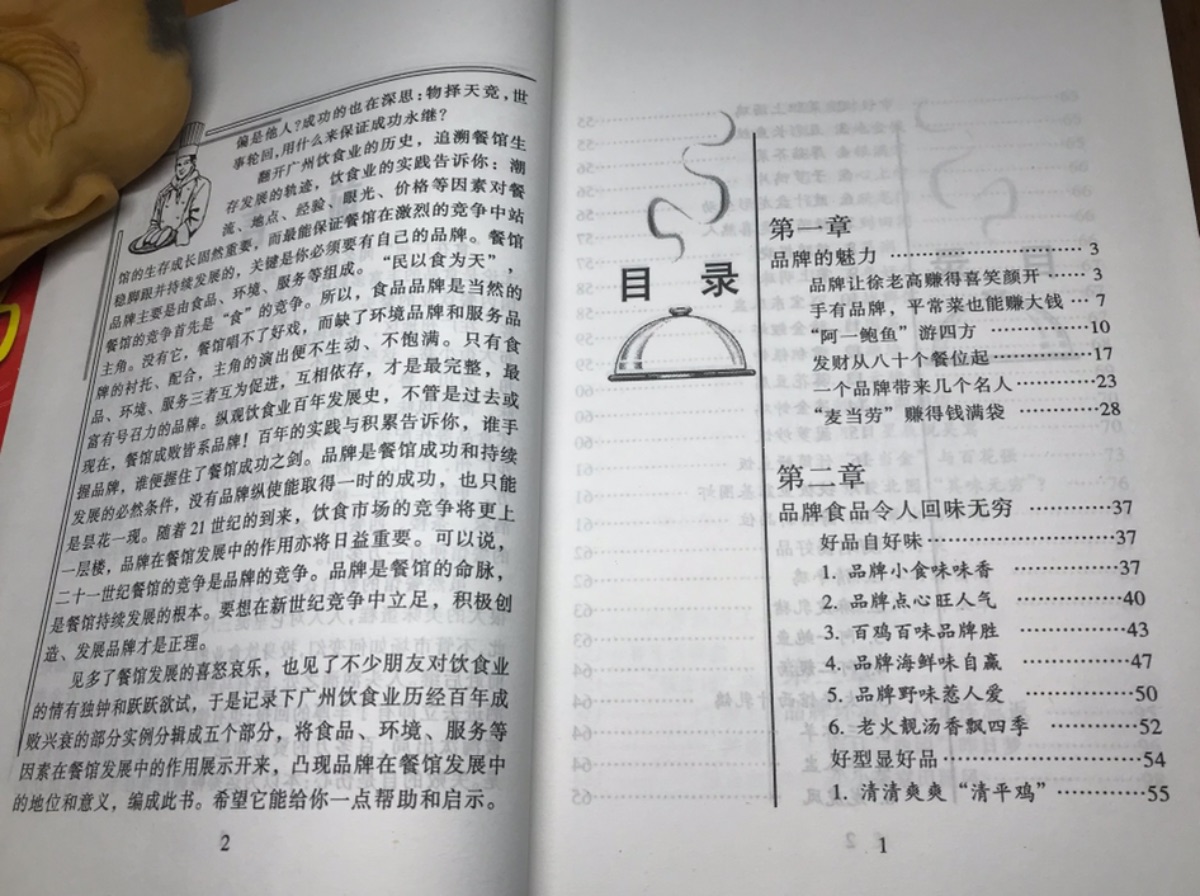 偏是他人?成功的也在深思:物择天竞,世
事轮回,用什么来保证成功永继?
翻开广州饮食业的历史,追溯餐馆生
存发展的轨迹,饮食业的实践告诉你:潮
流、地点、经验、眼光、价格等因素对餐
馆的生存成长固然重要,而最能保证餐馆在激烈的竞争中站
稳脚跟并持续发展的,关键是你必须要有自己的品牌。餐馆
品牌主要是由食品、环境、服务等组成。“民以食为天”,
餐馆的竞争首先是“食”的竞争。所以,食品品牌是当然的
主角。没有它,餐馆唱不了好戏,而缺了环境品牌和服务品
牌的衬托、配合,主角的演出便不生动、不饱满。只有食
品、环境、服务三者互为促进,互相依存,才是最完整,最
富有号召力的品牌。纵观饮食业百年发展史,不管是过去或
现在,餐馆成败皆系品牌!百年的实践与积累告诉你,谁手
握品牌,谁便握住了餐馆成功之剑。品牌是餐馆成功和持续
发展的必然条件,没有品牌纵使能取得一时的成功,也只能
是昙花一现。随着21世纪的到来,饮食市场的竞争将更上
一层楼,品牌在餐馆发展中的作用亦将日益重要。可以说,
二十一世纪餐馆的竞争是品牌的竞争。品牌是餐馆的命脉,
是餐馆持续发展的根本。要想在新世纪竞争中立足,积极创
造、发展品牌才是正理。
见多了餐馆发展的喜怒哀乐,也见了不少朋友对饮食业
的情有独钟和跃跃欲试,于是记录下广州饮食业历经百年成
败兴衰的部分实例分辑成五个部分,将食品、环境、服务等
因素在餐馆发展中的作用展示开来,凸现品牌在餐馆发展中
的地位和意义,编成此书。希望它能给你一点帮助和启示。
2
目 录
第一章
品牌的魅力 ………………………… 3
品牌让徐老高赚得喜笑颜开 ……… 3
手有品牌,平常菜也能赚大钱 … 7
“阿一鲍鱼”游四方 ……………10
发财从八十个餐位起……………17
一个品牌带来几个名人…………23
“麦当劳”赚得钱满袋 …………28
第二章
品牌食品令人回味无穷 …………37
好品自好味………………………37
1. 品牌小食味味香 ……………37
2. 品牌点心旺人气 ……………40
3. 百鸡百味品牌胜 ……………43
4. 品牌海鲜味自赢 ……………47
5. 品牌野味惹人爱 ……………50
6. 老火靓汤香飘四季 …………52
好型显好品………………………54
1. 清清爽爽“清平鸡”…………55
1